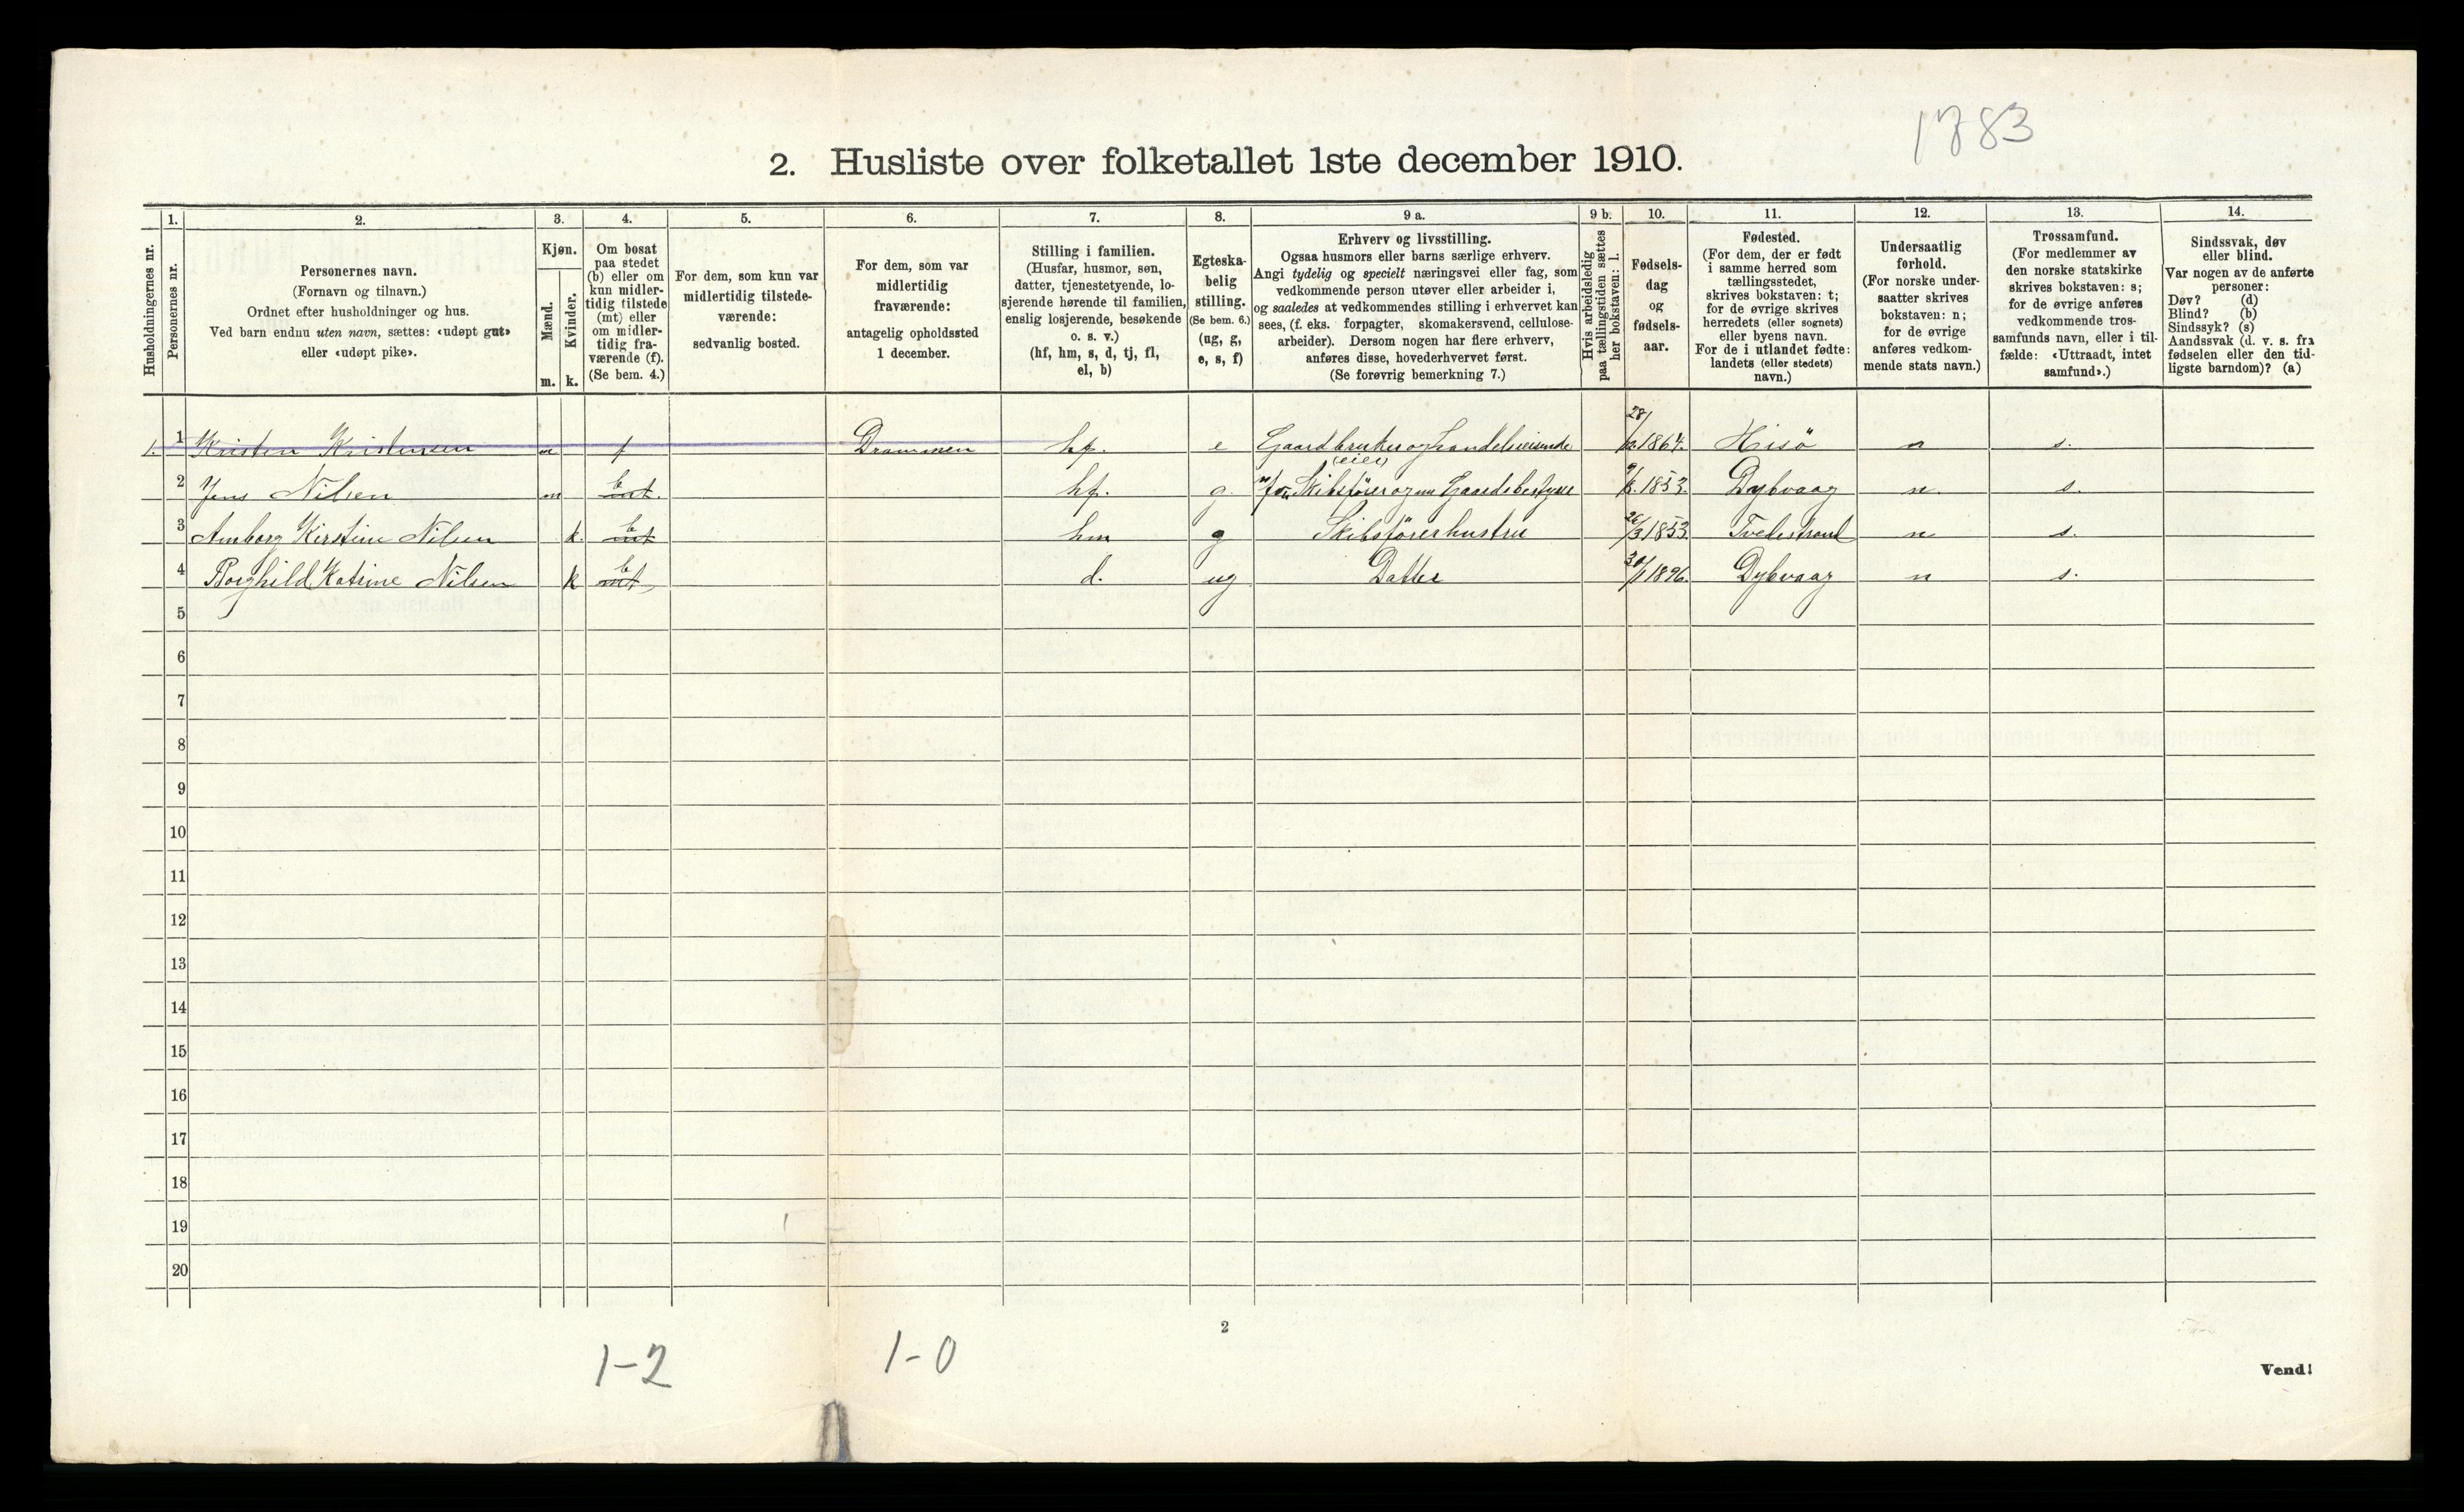 1783
2. Husliste over folketallet 1ste december 1910.
Husholdningernes nr.
1.
Personernes nr.
2.
Personernes navn.
(Fornavn og tilnavn.)
Ordnet efter husholdninger og hus.
Ved barn endnu uten navn, sættes: «udøpt gut»
eller «udøpt pike».
3.
Kjøn.
Mænd.
m.
Kvinder.
k.
4.
Om bosat
paa stedet
(b) eller om
kun midler-
tidig tilstede
(mt) eller
om midler-
tidig fra-
værende (f).
(Se bem. 4.)
5.
For dem, som kun var
midlertidig tilstede-
værende:
sedvanlig bosted.
6.
For dem, som var
midlertidig
fraværende:
antagelig opholdssted
1 december.
7.
Stilling i familien.
(Husfar, husmor, søn,
datter, tjenestetyende, lo-
sjerende hørende til familien,
enslig losjerende, besøkende
o. s. v.)
(hf, hm, s, d, tj, fl,
el, b)
8.
Egteska-
belig
stilling.
(Se bem. 6.)
(ug, g,
e, s, f)
9 a.
Erhverv og livsstilling.
Ogsaa husmors eller barns særlige erhverv.
Angi tydelig og specielt næringsvei eller fag, som
vedkommende person utøver eller arbeider i,
og saaledes at vedkommendes stilling i erhvervet kan
sees, (f. eks. forpagter, skomakersvend, cellulose-
arbeider). Dersom nogen har flere erhverv,
anføres disse, hovederhvervet først.
(Se forøvrig bemerkning 7.)
9 b.
Hvis arbeidsledig
paa tællingstiden sættes
her bokstaven: l.
10.
Fødsels-
dag
og
fødsels-
aar.
11.
Fødested.
(For dem, der er født
i samme herred som
tællingsstedet,
skrives bokstaven: t;
for de øvrige skrives
herredets (eller sognets)
eller byens navn.
For de i utlandet fødte:
landets (eller stedets)
navn.)
12.
Undersaatlig
forhold.
(For norske under-
saatter skrives
bokstaven: n;
for de øvrige
anføres vedkom-
mende stats navn.)
13.
Trossamfund.
(For medlemmer av
den norske statskirke
skrives bokstaven: s;
for de øvrige anføres
vedkommende tros-
samfunds navn, eller i til-
fælde: «Uttraadt, intet
samfund».)
14.
Sindssvak, døv
eller blind.
Var nogen av de anførte
personer:
Døv? (d)
Blind? (b)
Sindssyk? (s)
Aandssvak (d. v. s. fra
fødselen eller den tid-
ligste barndom)? (a)
1. 1 Kristen Kristensen m f Drammen hf. e Gaardbruker og Handelsreisende 28/12 1864. Hisö n s.
(eier)
2 Jens Nilsen m b mt. hf. g. Skibsfører og Gaardsbestyrer 1853. Dybvaag n. s.
3 Amborg Kirstine Nilsen k. b mt hm g Skibsførerhustru 26/3 1853 Tvedestrand n s.
4 Borghild Katrine Nilsen k b mt d. ug Datter 30/1 1896. Dybvaag n s.
5
6
7
8
9
10
11
12
13
14
15
16
17
18
19
20
2
1-2 1-0
Vend!